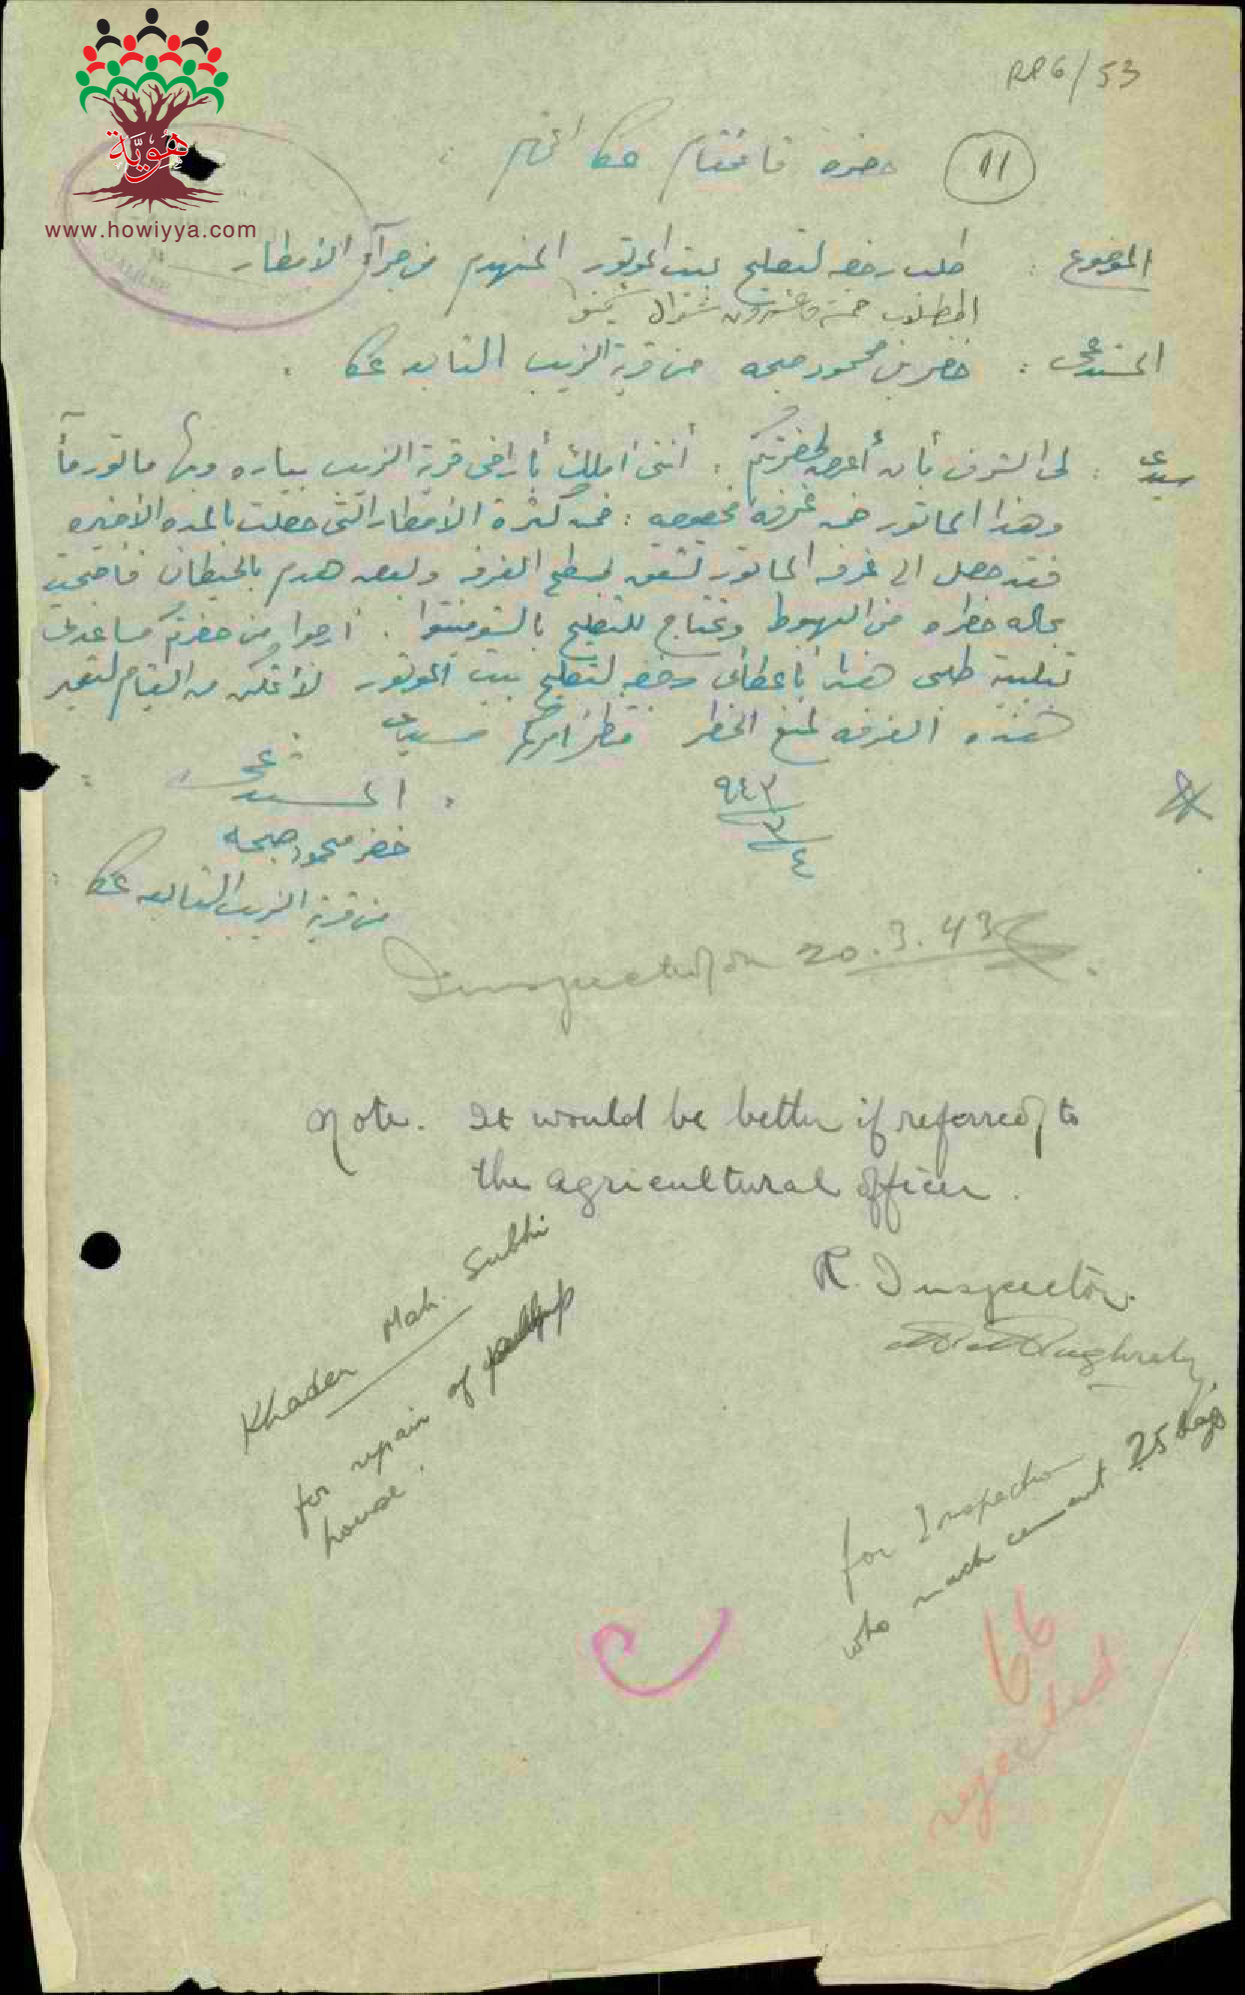 RP6/53
هُوِيَّة
www.howiyya.com
11
حضرة قائمقام عكا المحترم :
الموضوع : طلب رخصه لتصليح بيت الموتور المنهدم من جرآء الأمطار
المطلوب خمسة وعشرون شوال
المستدعى : خضر بن محمود صبحه من قرية الزيب التابعه عكا .
سيدى : لى الشرف بأن أعرض لحضرتكم : أننى أملك بأراضى قرية الزيب بياره وبها ماتور مآ
وهذا الماتور ضمن غرفة مخصوصه : فمن كثرة الأمطار التى حصلت بالمده الأخيره
فقد حصل الى غرفة الماتور تشقق بسطح الغرفه وبعض هدم بالحيطان فاصبحت
بحاله خطره من الهبوط وتحتاج للتصليح بالشومنتوا . ارجوا من حضرتكم مساعدتى
تلبية طلبى هذا باعطائى رخصه لتصليح بيت الموتور لأتمكن من القيام لتعمير
هذه الغرفه لمنع الخطر منتظر امركم سيدى
المستدعى
٩٤٣
٣
٤
خضر محمود صبحه
من قرية الزيب التابعه عكا
Inspected on 20.3.43
Note. It would be better if referred to
the agricultural officer.
R. Inspector.
Khader Mah. Subhi
for repair of
house.
for Inspection
who much cement 25 bags
66
rejected